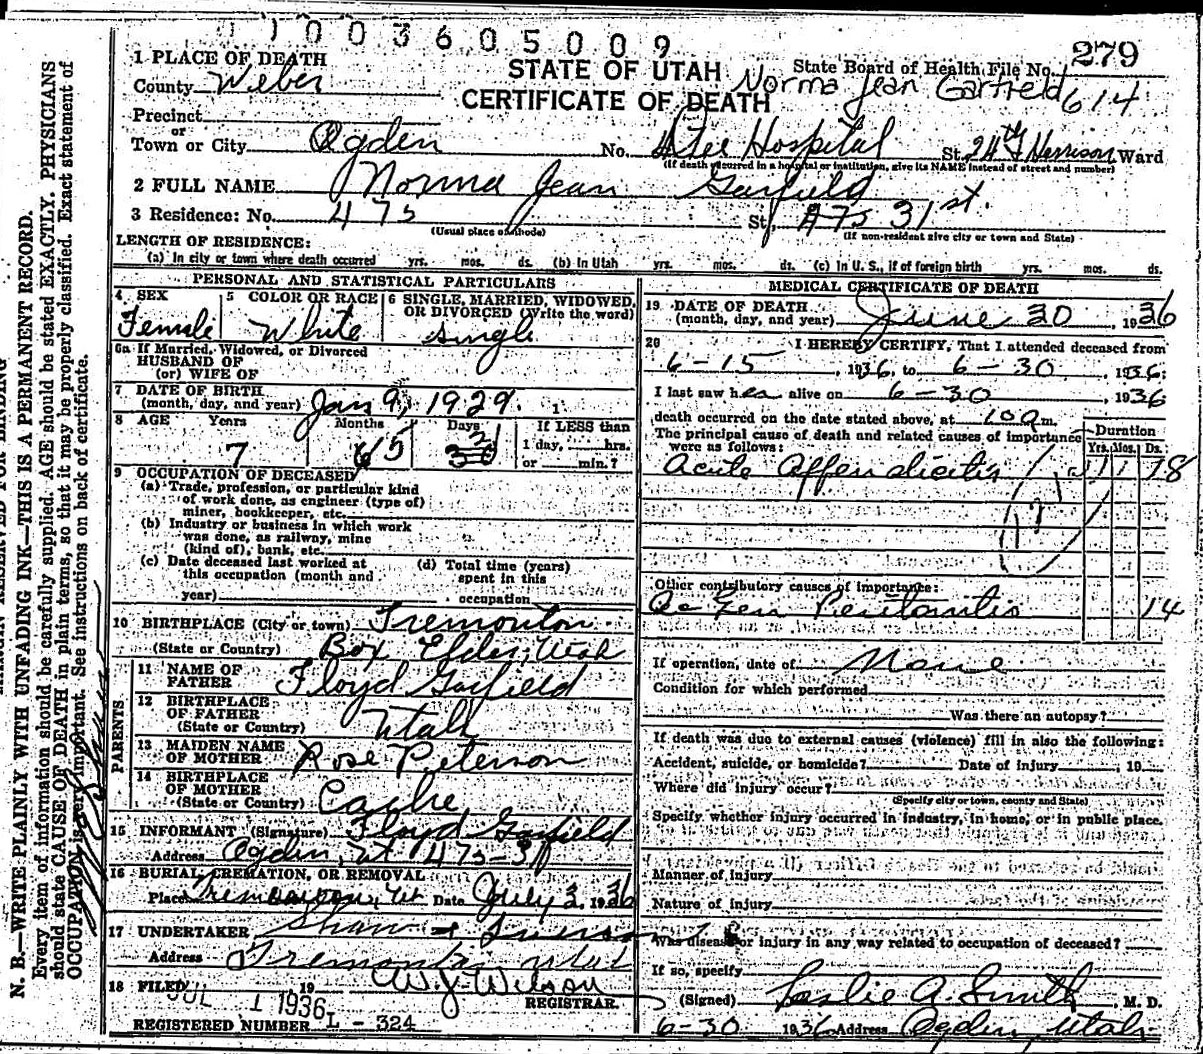 0 1 0 0 3 6 0 5 0 0 9
279
1 PLACE OF DEATH
STATE OF UTAH
State Board of Health File No.
County Weber
Norma Jean Garfield 614
CERTIFICATE OF DEATH
Precinct
or
Town or City Ogden No. Dee Hospital St. 24 & Harrison Ward
(If death occurred in a hospital or institution, give its NAME instead of street and number)
2 FULL NAME Norma Jean Garfield
3 Residence: No. 475 St. 475 31st.
(Usual place of abode) (If non-resident give city or town and State)
LENGTH OF RESIDENCE:
(a) In city or town where death occurred yrs. mos. ds. (b) In Utah yrs. mos. ds. (c) In U. S., if of foreign birth yrs. mos. ds.
PERSONAL AND STATISTICAL PARTICULARS
4 SEX Female
5 COLOR OR RACE White
6 SINGLE, MARRIED, WIDOWED, OR DIVORCED (Write the word) single
6a If Married, Widowed, or Divorced
HUSBAND OF
(or) WIFE OF
7 DATE OF BIRTH
(month, day, and year) Jan 9, 1929
8 AGE Years Months Days If LESS than
7 5 1 day, hrs.
or min.?
9 OCCUPATION OF DECEASED
(a) Trade, profession, or particular kind
of work done, as engineer (type of)
miner, bookkeeper, etc.
(b) Industry or business in which work
was done, as railway, mine
(kind of), bank, etc.
(c) Date deceased last worked at
this occupation (month and
year)
(d) Total time (years)
spent in this
occupation
10 BIRTHPLACE (City or town) Tremonton
(State or Country) Box Elder, Utah
PARENTS
11 NAME OF
FATHER Floyd Garfield
12 BIRTHPLACE
OF FATHER
(State or Country) Utah
13 MAIDEN NAME
OF MOTHER Rose Peterson
14 BIRTHPLACE
OF MOTHER
(State or Country) Cache
15 INFORMANT (Signature) Floyd Garfield
Address Ogden, Ut 475-31
16 BURIAL, CREMATION, OR REMOVAL
Place Tremonton, Ut Date July 2, 1936
17 UNDERTAKER Shaw &
Address Tremonton Utah
18 FILED JUL 1 1936 19 W. J. Wilson
REGISTRAR.
REGISTERED NUMBER L - 324
MEDICAL CERTIFICATE OF DEATH
19 DATE OF DEATH
(month, day, and year) June 30, 1936
20 I HEREBY CERTIFY, That I attended deceased from
6-15, 1936, to 6-30, 1936;
I last saw her alive on 6-30, 1936
death occurred on the date stated above, at 10 a m.
The principal cause of death and related causes of importance
were as follows:
Duration
Yrs. Mos. Ds.
Acute Appendicitis 18
Other contributory causes of importance:
Ac Gen Peritonitis 14
If operation, date of None
Condition for which performed
Was there an autopsy?
If death was due to external causes (violence) fill in also the following:
Accident, suicide, or homicide? Date of injury , 19
Where did injury occur?
(Specify city or town, county and State)
Specify whether injury occurred in industry, in home, or in public place.
Manner of injury
Nature of injury
Was disease or injury in any way related to occupation of deceased?
If so, specify
(Signed) Leslie A. Smith, M. D.
6-30 1936 Address Ogden, Utah
N. B.—WRITE PLAINLY WITH UNFADING INK—THIS IS A PERMANENT RECORD.
Every item of information should be carefully supplied. AGE should be stated EXACTLY. PHYSICIANS
should state CAUSE OF DEATH in plain terms, so that it may be properly classified. Exact statement of
OCCUPATION is very important. See instructions on back of certificate.